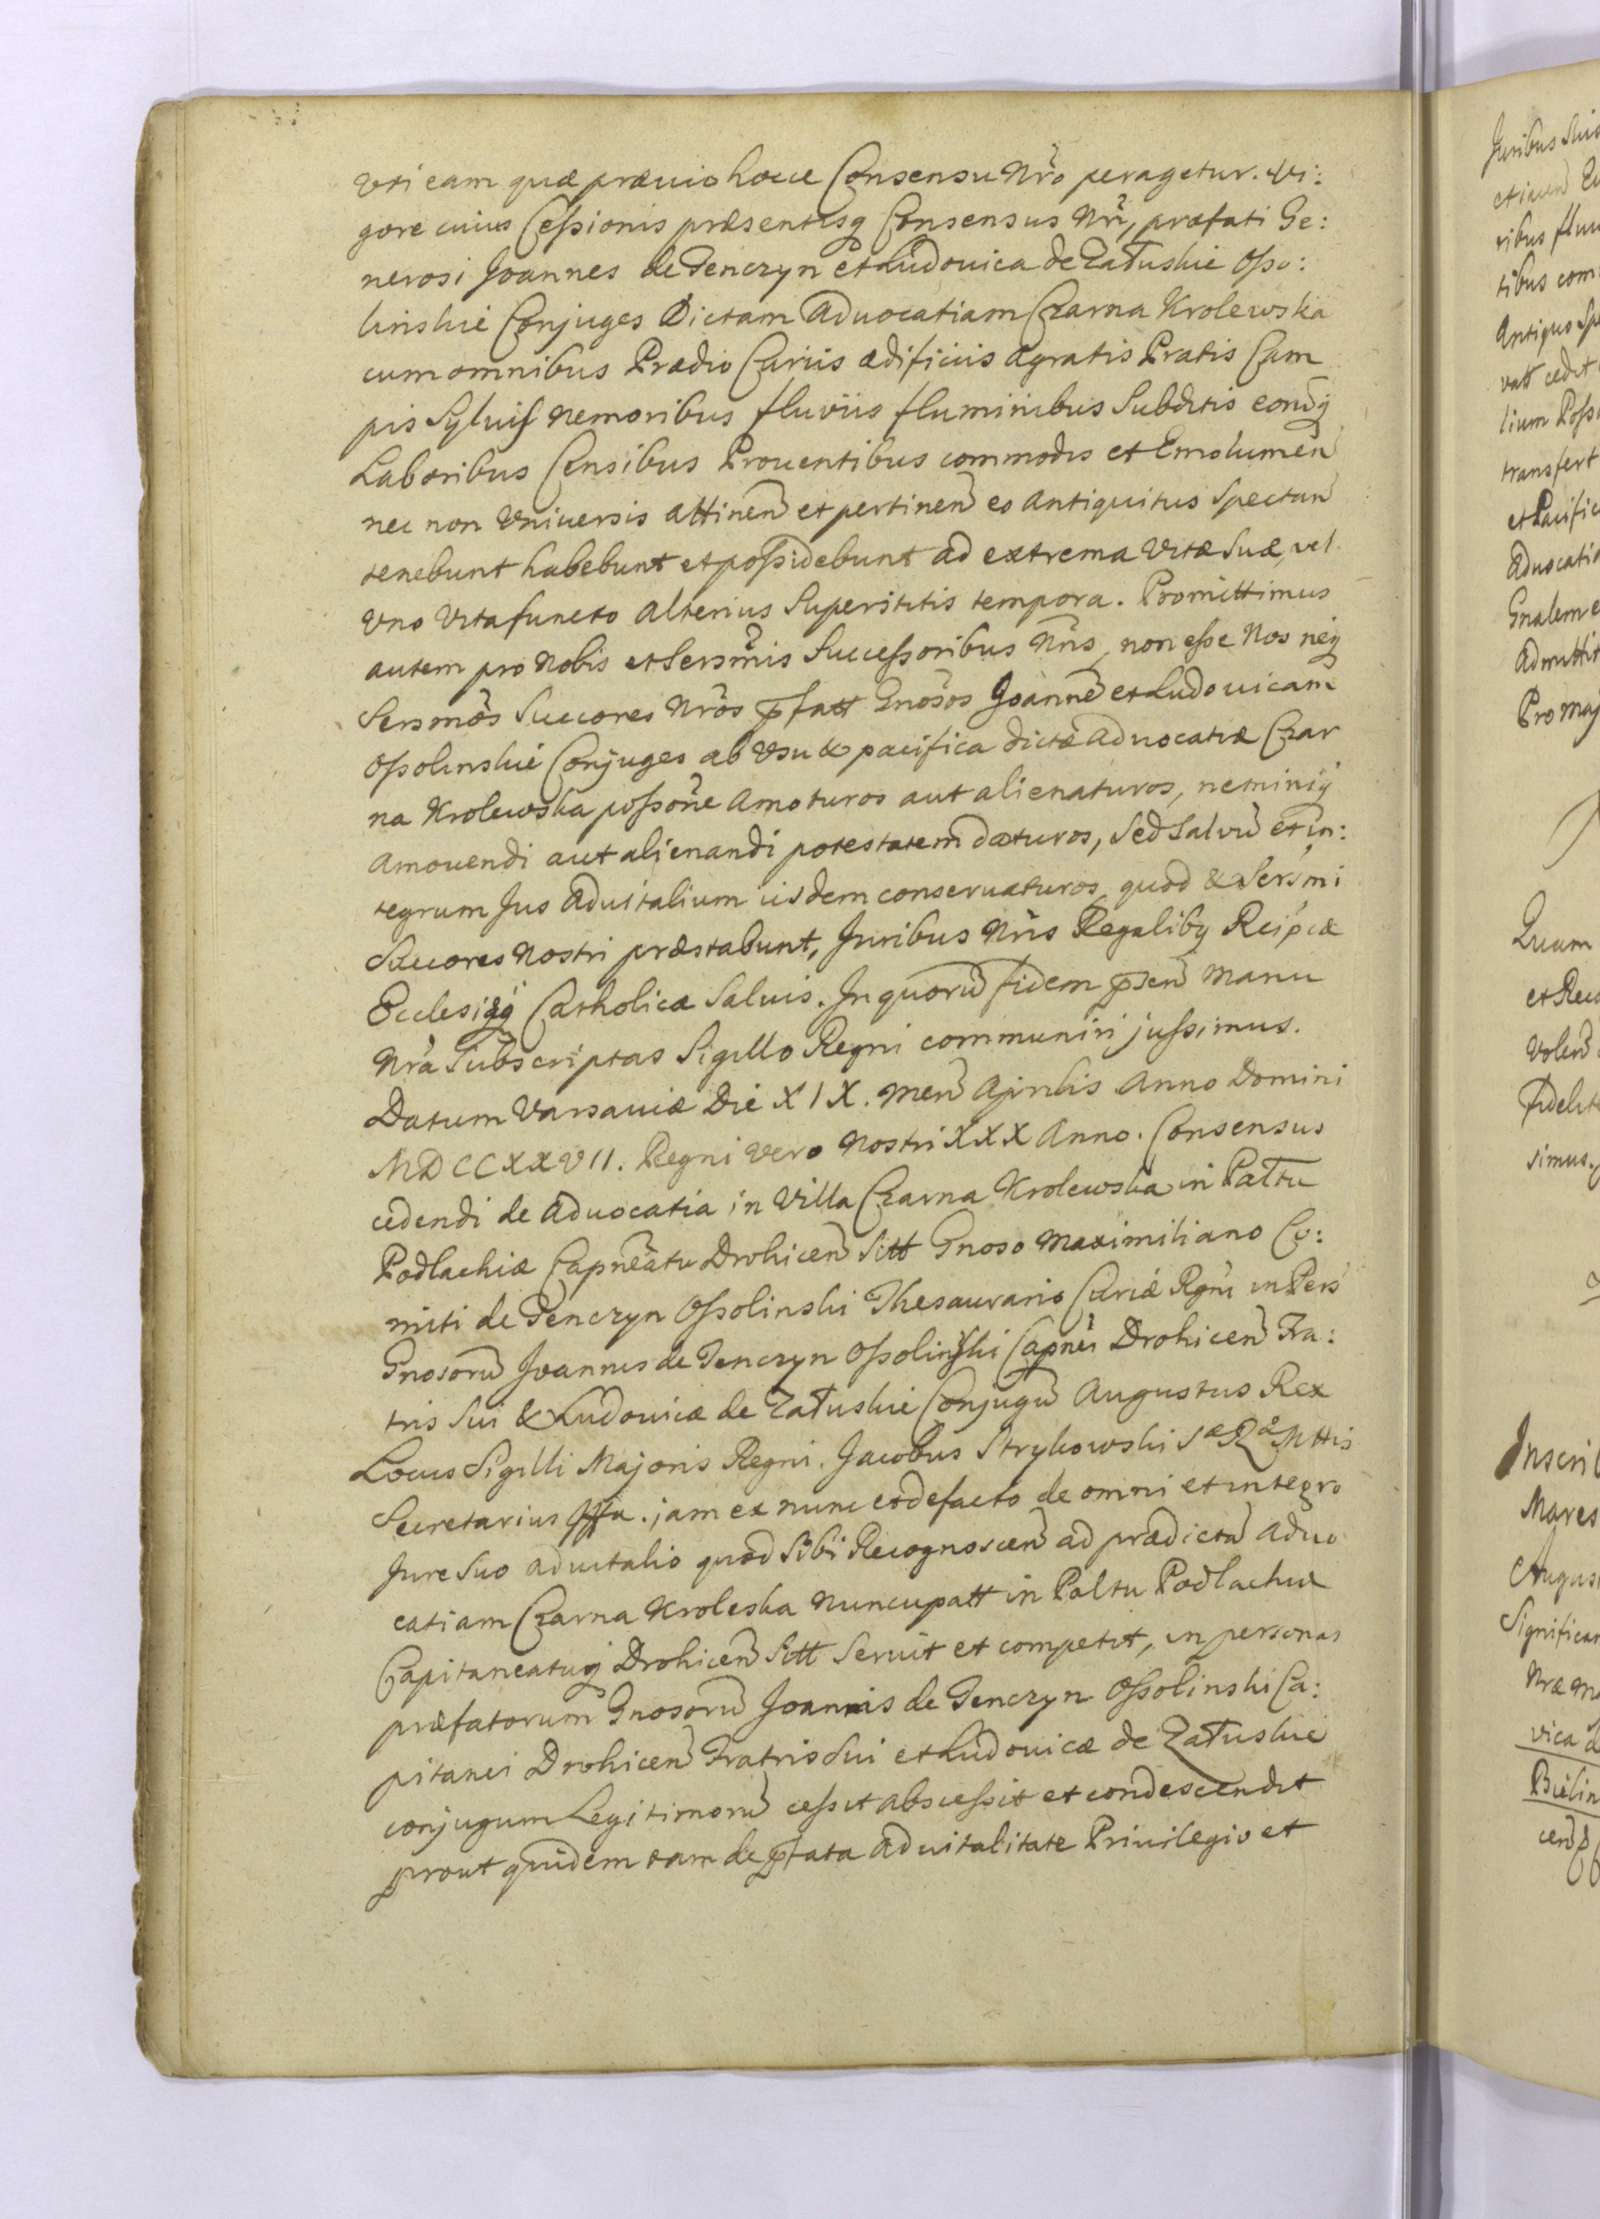 Vti eam quæ præuio hocce Consensu Nr̃o peragetur. Vi:
gore cuius Cessionis præsentisq Consensus Nr̃i, præfati Ge:
nerosi Joannes de Tenczyn et Ludouica de Załuskie Osso:
linskie Conjuges Dictam Aduocatiam Czarna Krolewska
cum omnibus Prædio Curiis ædificiis Agratis Pratis Cam
pis Syluis Nemoribus fluviis fluminibus Subditis eondq
Laboribus Censibus Prouentibus commodis et Emolumen̄
nec non Vniuersis attinen̄ et pertinen̄ eo Antiquitus Spectan̄
tenebunt habebunt et possidebunt ad extrema Vitæ Suæ, vel
Vno Vita functo Alterius Superstitis tempora. Promittimus
autem pro Nobis et Sersm̃is Successoribus Nr̃is, non esse Nos neq
Sersmõs Succores Nr̃os p̄fatt Gnosos Joannē et Ludouicam
Ossolinskie Conjuges ab Vsu & pacifica dictæ Aduocatiæ Czar
na Krolewska possone Amoturos aut alienaturos, neminiq
Amouendi aut alienandi potestatem daturos, Sed Salvū et in:
tegrum Jus Aduitalium iisdem conseruaturos, quod & Sersmi
Succores Nostri præstabunt, Juribus Nr̃is Regalibq Reip̃cæ
Ecclesiæq Catholicæ Saluis. In quorū fidem p̄sen̄ Manu
Nr̃a Subscriptas Sigillo Regni communiri jussimus.
Datum Varsauiæ Die XIX. Men̄ Aprilis Anno Domini
MDCCXXVII. Regni Vero Nostri XXX Anno. Consensus
cedendi de Aduocatia in Villa Czarna Krolewska in Pałtu
Podlachiæ Capneatu Drohicen̄ Sitt Gnoso Maximiliano Co:
miti de Tenczyn Ossolinski Thesaurario Curiæ Rgni in Pers
Gnosorū Joannis de Tenczyn Ossolinski Capnei Drohicen̄ Fra:
tris Sui & Ludouicæ de Załuskie Conjugū Augustus Rex
Locus Sigilli Majoris Regni. Jacobus Strykowski Sæ Ræ Mttis
Secretarius. jam ex nunc et de facto de omni et integro
Jure Suo aduitalio quod Sibi Recognoscen̄ ad prædictā Aduo
catiam Czarna Kroleska Nuncupatt in Paltu Podlachiæ
Capitaneatuq Drohicen̄ Sitt Seruit et competit, in personas
præfatorum Gnosorū Joannis de Tenczyn Ossolinski Ca:
pitanei Drohicen̄ Fratris Sui et Ludouicæ de Załuskie
conjugum Legitimorū cessit abscessit et condescendit
prout quidem tam de p̄fata Aduitalitate Priuilegio et